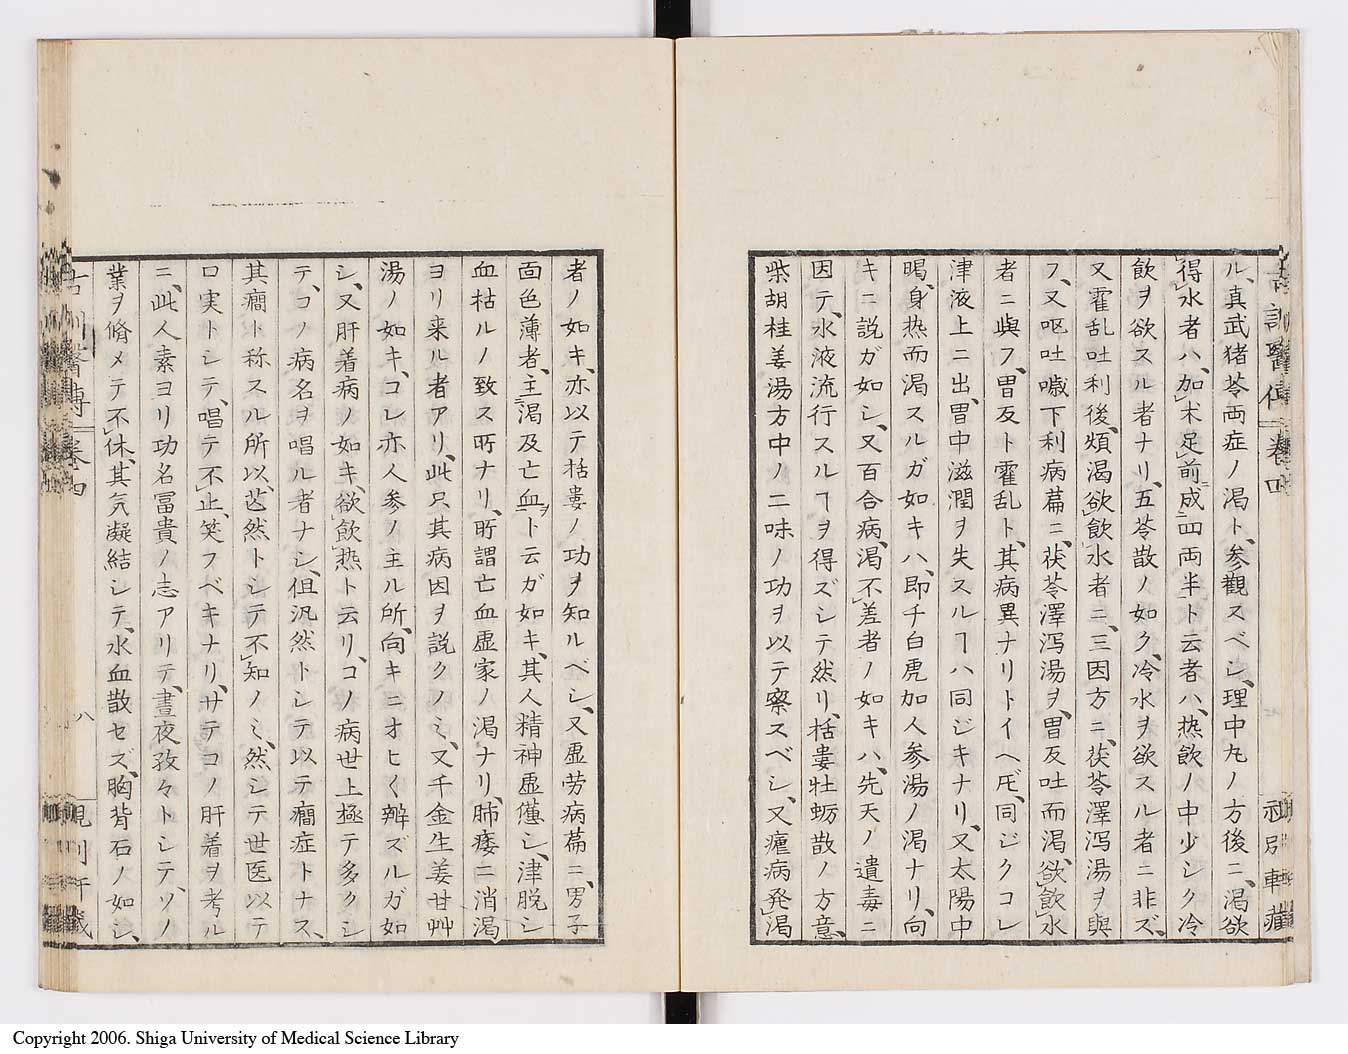 ル、真武猪苓両症ノ渇ト、参觀スベシ、理中丸ノ方後ニ、渇欲
得水者ハ、加朮足前成四両半ト云者ハ、熱飲ノ中少シク冷
飲ヲ欲スル者ナリ、五苓散ノ如ク、冷水ヲ欲スル者ニ非ズ、
又霍乱吐利後、煩渇欲飲水者ニ、三因方ニ、茯苓澤瀉湯ヲ與
フ、又呕吐噦下利病篇ニ、茯苓澤瀉湯ヲ、胃反吐而渇、欲飲水
者ニ與フ、胃反ト霍乱ト、其病異ナリトイヘ𪜈、同ジクコレ
津液上ニ出、胃中滋潤ヲ失スルヿハ同ジキナリ、又太陽中
暍、身热而渇スルガ如キハ、即チ白虎加人参湯ノ渇ナリ、向
キニ説ガ如シ、又百合病、渇不差者ノ如キハ、先天ノ遺毒ニ
因テ、水液流行スルヿヲ得ズシテ然リ、括蔞牡蛎散ノ方意、
柴胡桂姜湯方中ノ二味ノ功ヲ以テ察スベシ、又瘧病発渇
者ノ如キ、亦以テ括蔞ノ功ヲ知ルベシ、又虚劳病篇ニ、男子
面色薄者、主渇及亡血ヲト云ガ如キ、其人精神虚僅シ、津脱シ
血枯ルノ致ス所ナリ、所謂亡血虚家ノ渇ナリ、肺痿ニ消渇
ヨリ来ル者アリ、此只其病因ヲ説クノミ、又千金生姜甘艸
湯ノ如キ、コレ亦人参ノ主ル所、向キニオヒく辨ズルガ如
シ、又肝着病ノ如キ、欲飲热ト云リ、コノ病世上極テ多クシ
テ、コノ病名ヲ唱ル者ナシ、但汎然トシテ以テ癇症トナス、
其癇ト称スル所以、茫然トシテ不知ノミ、然シテ世医以テ
口実トシテ、唱テ不止、笑フベキナリ、サテコノ肝着ヲ考ル
ニ、此人素ヨリ功名冨貴ノ志アリテ、晝夜孜々トシテ、ソノ
業ヲ脩メテ不休、其気凝結シテ、水血散セズ、胸背石ノ如シ、
八